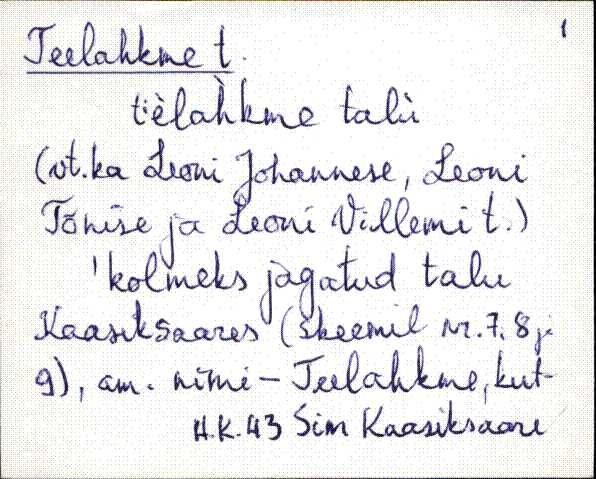 1
Teelahkme t.
tièlàhkme talù
(vt. ka Leoni Johannese, Leoni
Tõnise ja Leoni Villemi t.)
'kolmeks jagatud talu
Kaasiksaares (skeemil nr. 7, 8 ja
9), am. nimi - Teelahkme, kut-
H.K. 43 Sim Kaasiksaare